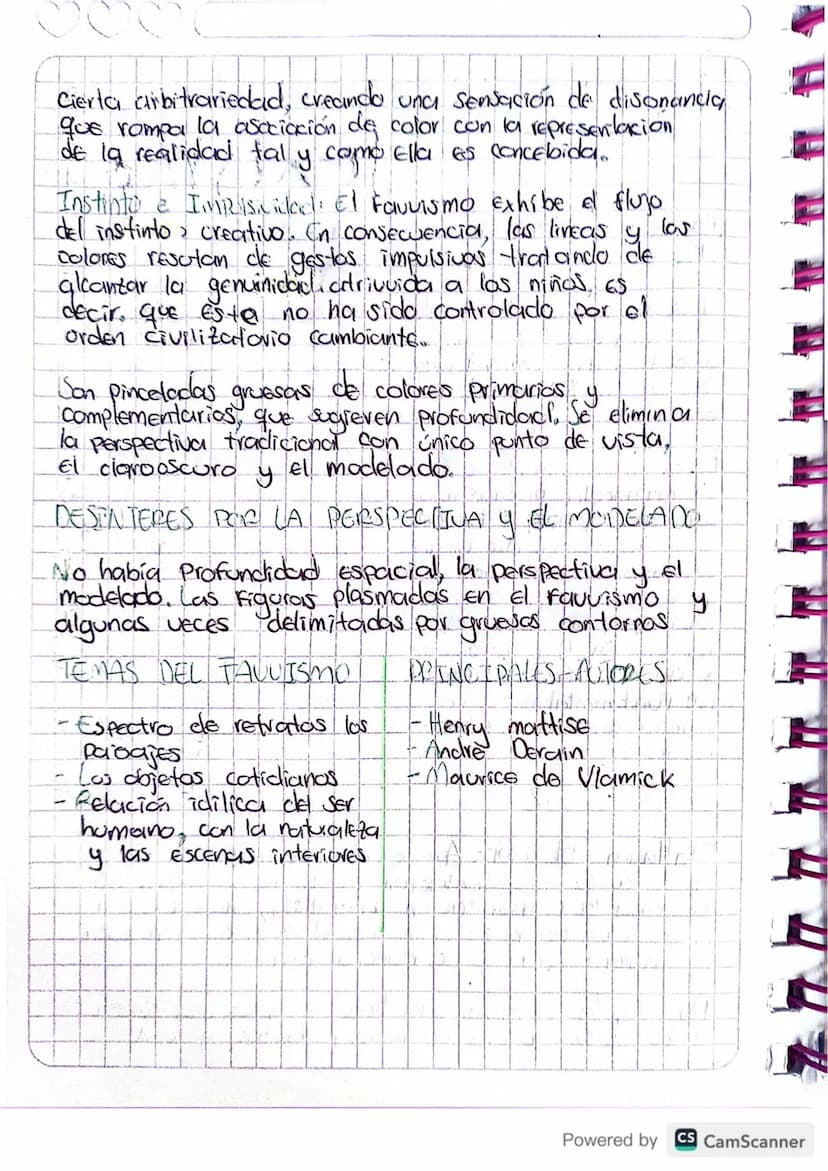 Cierta arbitrariedad, creando una sensación de disonancia
que rompa la asociación de color con la representacion
de la realidad tal y como Ella es concebida.
Instinto e : El Fauvismo Exhibe el flujo
del instinto creativo. En consecuencia, las lineas y los
colores resultan de gestos impulsivos tratando de
alcantar la genuinidad a los niños, es
decir, que Ésta no ha sido controlado por el
orden civilizatorio cambiante.
Son pinceladas gruesas de colores primarios y
complementarios, que sugieren profundidad. Se elimina
la perspectiva tradicional con único punto de vista,
El clarooscuro y el modelado.
DESINTERES POR LA PERSPECTIVA y EL MODELADO
No había Profundidad Espacial, la perspectiva y el
modelado. Las Figuras plasmadas en El Fauvismo y
algunas veces delimitadas por gruesos contornos
TEMAS DEL FAUVISMO
- Espectro de retratos los
paisajes
- Los objetos cotidianos
- Relación idilica del ser
humano, con la naturaleza
y las escenas interiores
PRINCIPALES AUTORES
- Henry mattise
- André Derain
- Maurice de Vlamick
Powered by CS CamScanner